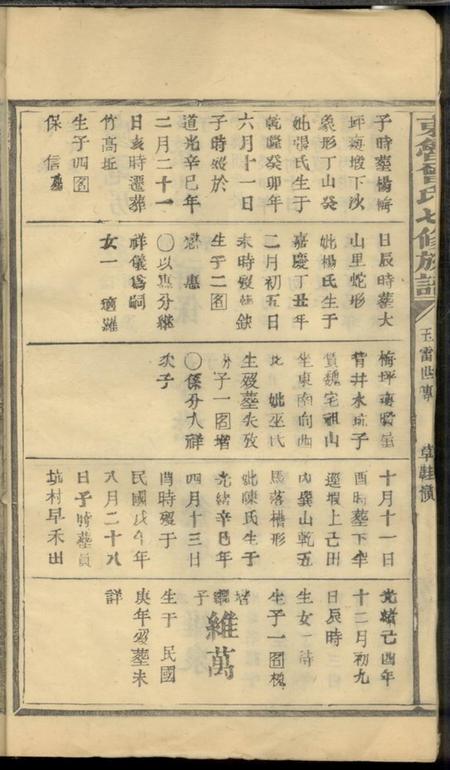 東魯曾氏七修族譜
玉雷世專
草鞋濱
子時葬楊梅
坪海墩下沙
象形丁山癸
妣張氏生于
乾隆癸卯年
六月十一日
子時歿於
道光辛巳年
二月二十一
日亥時遷葬
竹高坵
生子四
保 信
日辰時葬大
山里蛇形
妣楊氏生于
嘉慶丁丑年
二月初五日
未時歿缺
生子二
惠
〇以惠分繼
祥儀為嗣
女一 適羅
梅坪
背井水坑子
員魏宅祖山
坐東南向西
北 妣巫氏
生歿葬失攷
子一 增
〇係分入祥
次子
十月十一日
酉時葬下牢
逕塅上己田
內巽山乾五
馬落槽形
妣陳氏生于
光緒辛巳年
四月十三日
酉時歿于
民國戊午年
八月二十八
日子時葬員
坑村早禾田
光緒己酉年
十二月初九
日辰時
生女一 詩
生子一 槐
子
維萬
生于 民國
庚年歿葬未
詳